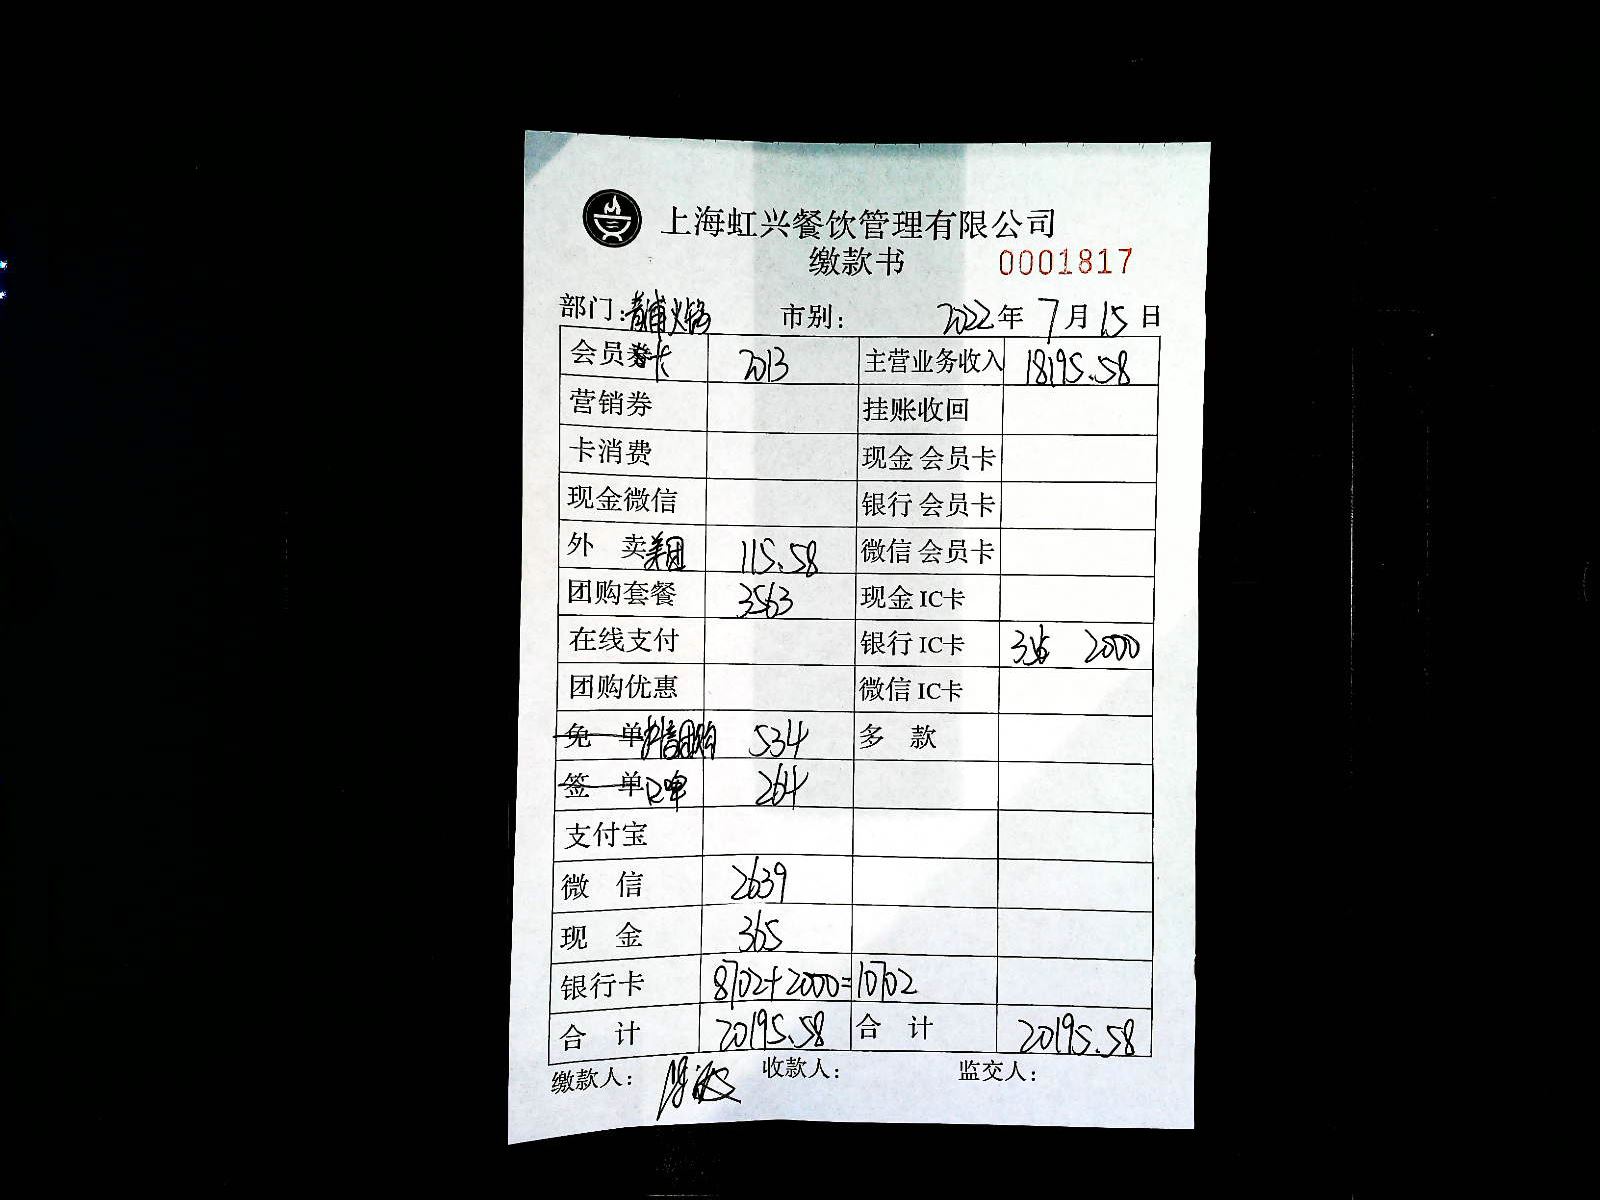 上海虹兴餐饮管理有限公司
缴款书 0001817
部门:青浦火锅 市别: 2022年 7月 15日
会员券卡 2013 主营业务收入 18195.58
营销券 挂账收回
卡消费 现金会员卡
现金微信 银行会员卡
外 卖美团 115.58 微信会员卡
团购套餐 3563 现金IC卡
在线支付 银行IC卡 2000
团购优惠 微信IC卡
免 单抖音团购 534 多 款
签 单口啤 264
支付宝
微 信 2639
现 金 365
银行卡 8702+2000=10702
合 计 20195.58 合 计 20195.58
缴款人: 收款人: 监交人: